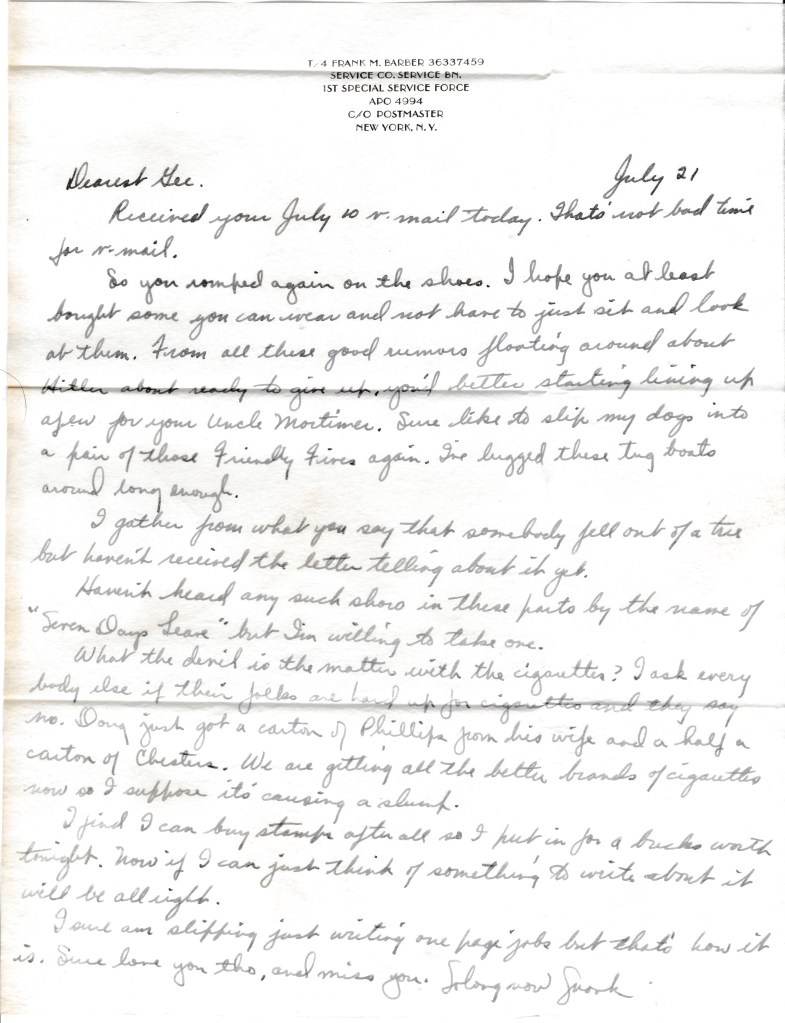 T/4 FRANK M. BARBER 36337459
SERVICE CO. SERVICE BN.
1ST SPECIAL SERVICE FORCE
APO 4994
C/O POSTMASTER
NEW YORK, N.Y.
July 21
Dearest Gee.
Received your July 10 v-mail today. That's not bad time
for v-mail.
So you romped again on the shoes. I hope you at least
bought some you can wear and not have to just sit and look
at them. From all these good rumors floating around about
Hitler about ready to give up, you'd better starting lining up
a few for your Uncle Mortimer. Sure like to slip my dogs into
a pair of those Friendly Fives again. I've lugged these tug boats
around long enough.
I gather from what you say that somebody fell out of a tree
but haven't received the letter telling about it yet.
Haven't heard any such show in these parts by the name of
"Seven Days Leave" but I'm willing to take one.
What the devil is the matter with the cigarettes? I ask every
body else if their folks are hard up for cigarettes and they say
no. Doug just got a carton of Phillips from his wife and a half a
carton of Chesters. We are getting all the better brands of cigarettes
now so I suppose it's causing a slump.
I find I can buy stamps after all so I put in for a bucks worth
tonight. Now if I can just think of something to write about it
will be all right.
I sure am slipping just writing one page jobs but that's how it
is. Sure love you tho, and miss you. So long now